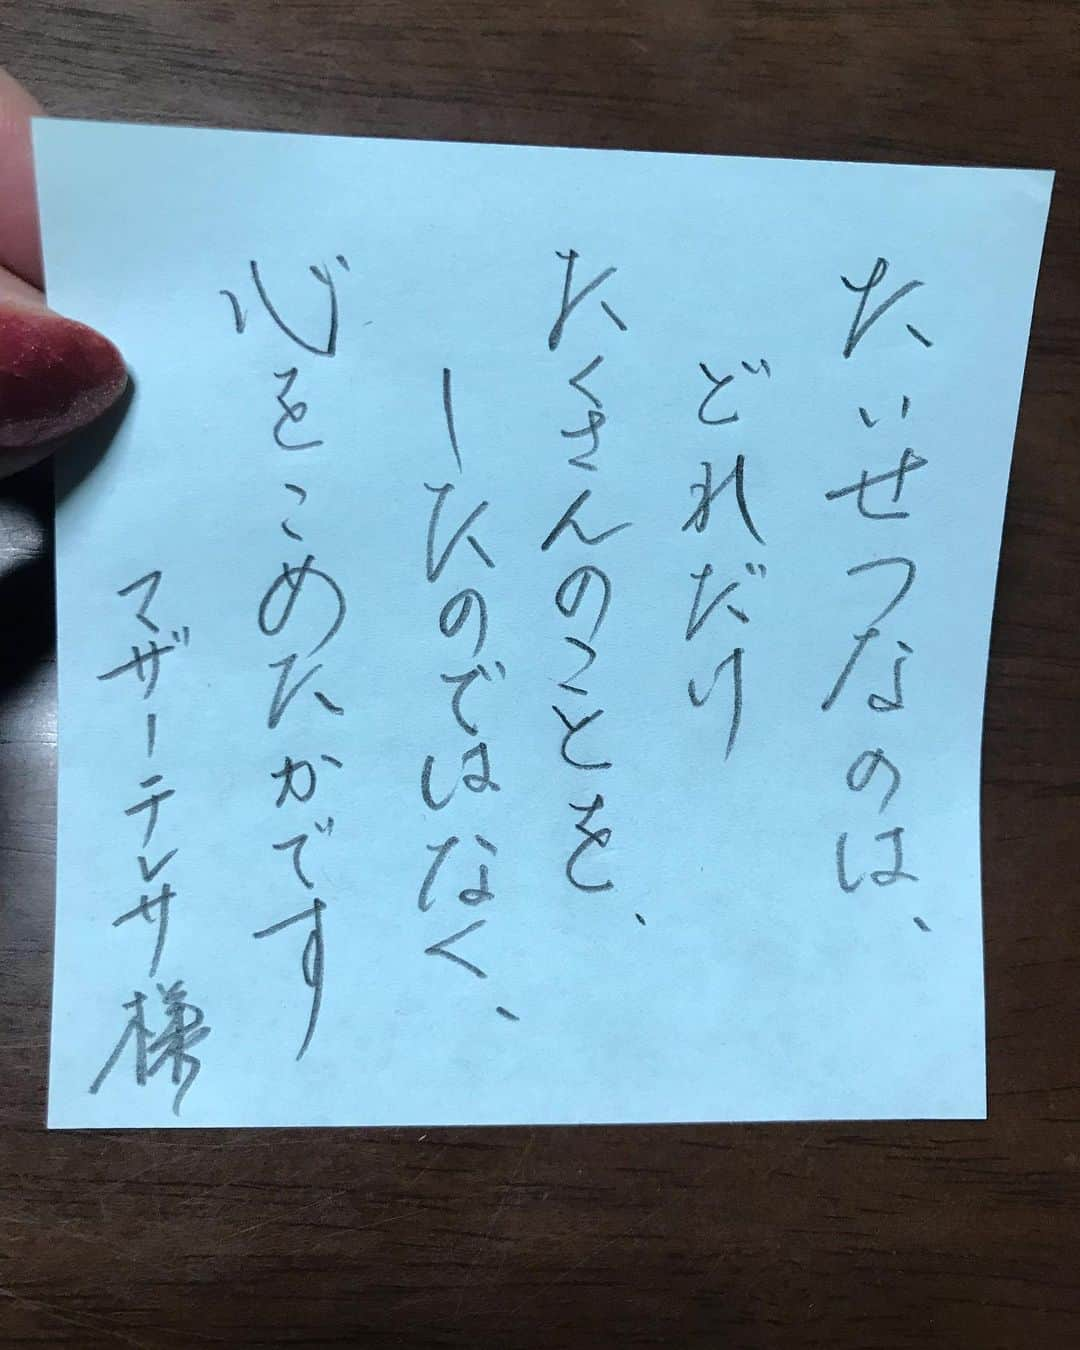 たいせつなのは、
どれだけ
たくさんのことを、
したのではなく、
心をこめたかです
マザーテレサ様